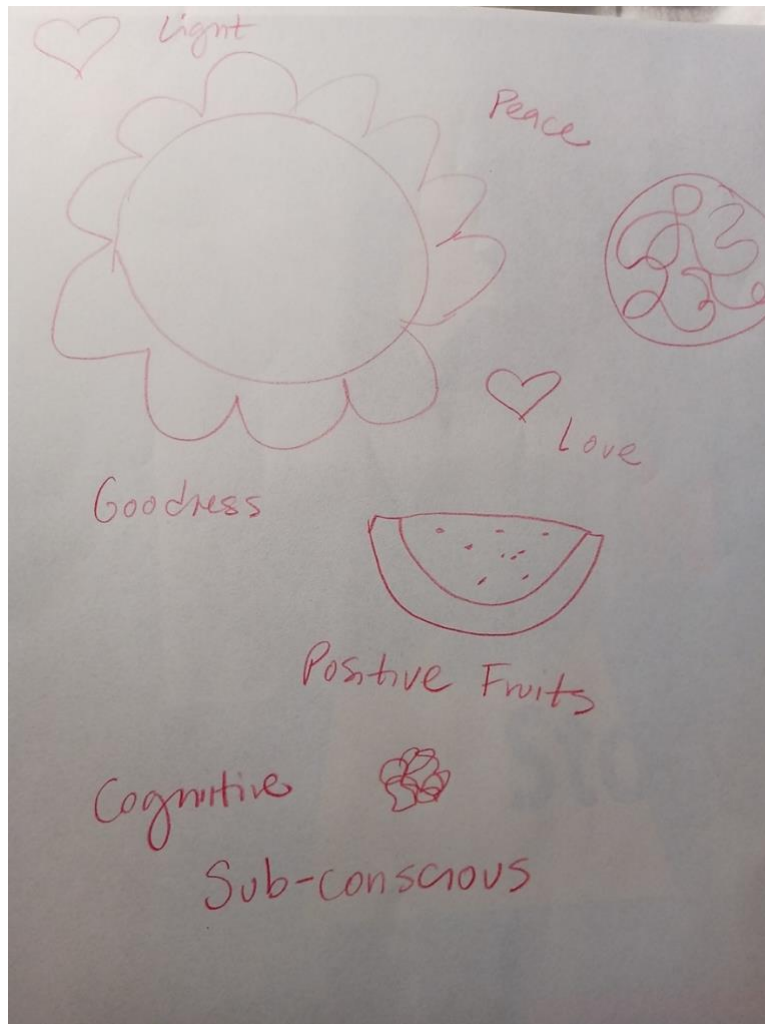 Light
Peace
Love
Goodness
Positive Fruits
Cognitive
Sub-conscious